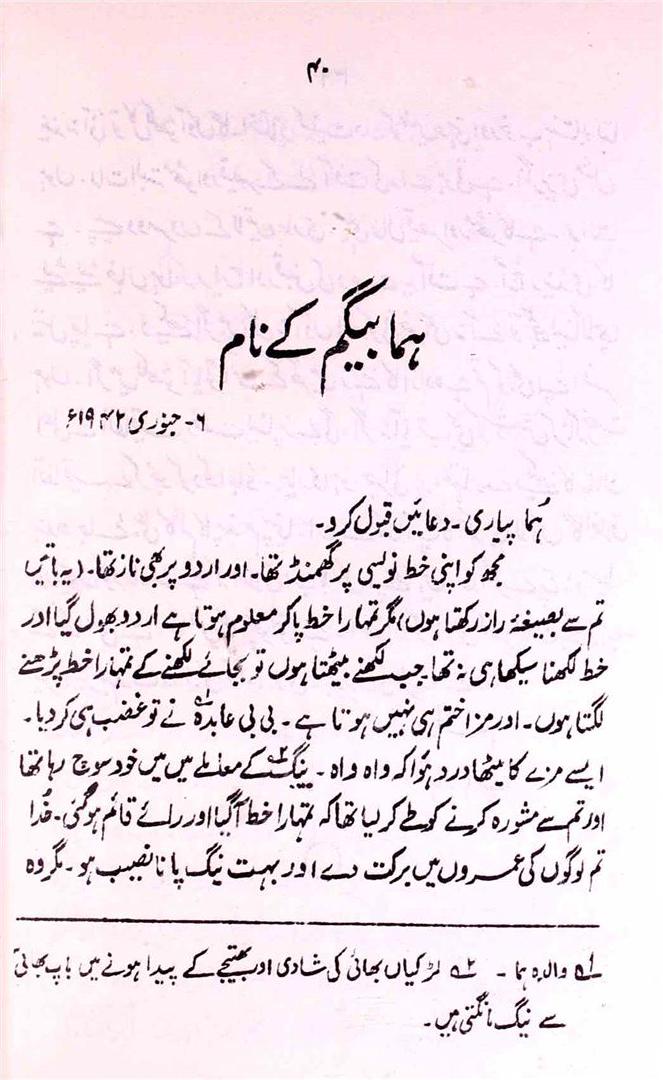 ۴۰
ہما بیگم کے نام
۶- جنوری ۱۹۴۲ء
ہُما پیاری - دعائیں قبول کرو -
مجھ کو اپنی خط نویسی پر گھمنڈ تھا - اور اردو پر بھی ناز تھا - (یہ باتیں
تم سے بصیغۂ راز رکھتا ہوں) مگر تمہارا خط پا کر معلوم ہوتا ہے اردو بھول گیا اور
خط لکھنا سیکھا ہی نہ تھا جب لکھنے بیٹھتا ہوں تو بجائے لکھنے کے تمہارا خط پڑھنے
لگتا ہوں - اور مزا ختم ہی نہیں ہوتا ہے - بی بی عابدہ ۱؎ نے تو غضب ہی کر دیا -
ایسے مزے کا میٹھا درد ہؤا کہ واہ واہ - نیگ ۲؎ کے معاملے میں میں خود سوچ رہا تھا
اور تم سے مشورہ کرنے کو طے کر لیا تھا کہ تمہارا خط آ گیا اور رائے قائم ہو گئی - خُدا
تم لوگوں کی عمروں میں برکت دے اور بہت نیگ پانا نصیب ہو - مگر وہ
۱؎ والدہ ہما - ۲؎ لڑکیاں بھائی کی شادی اور بھتیجے کے پیدا ہونے میں باپ بھائی
سے نیگ مانگتی ہیں -